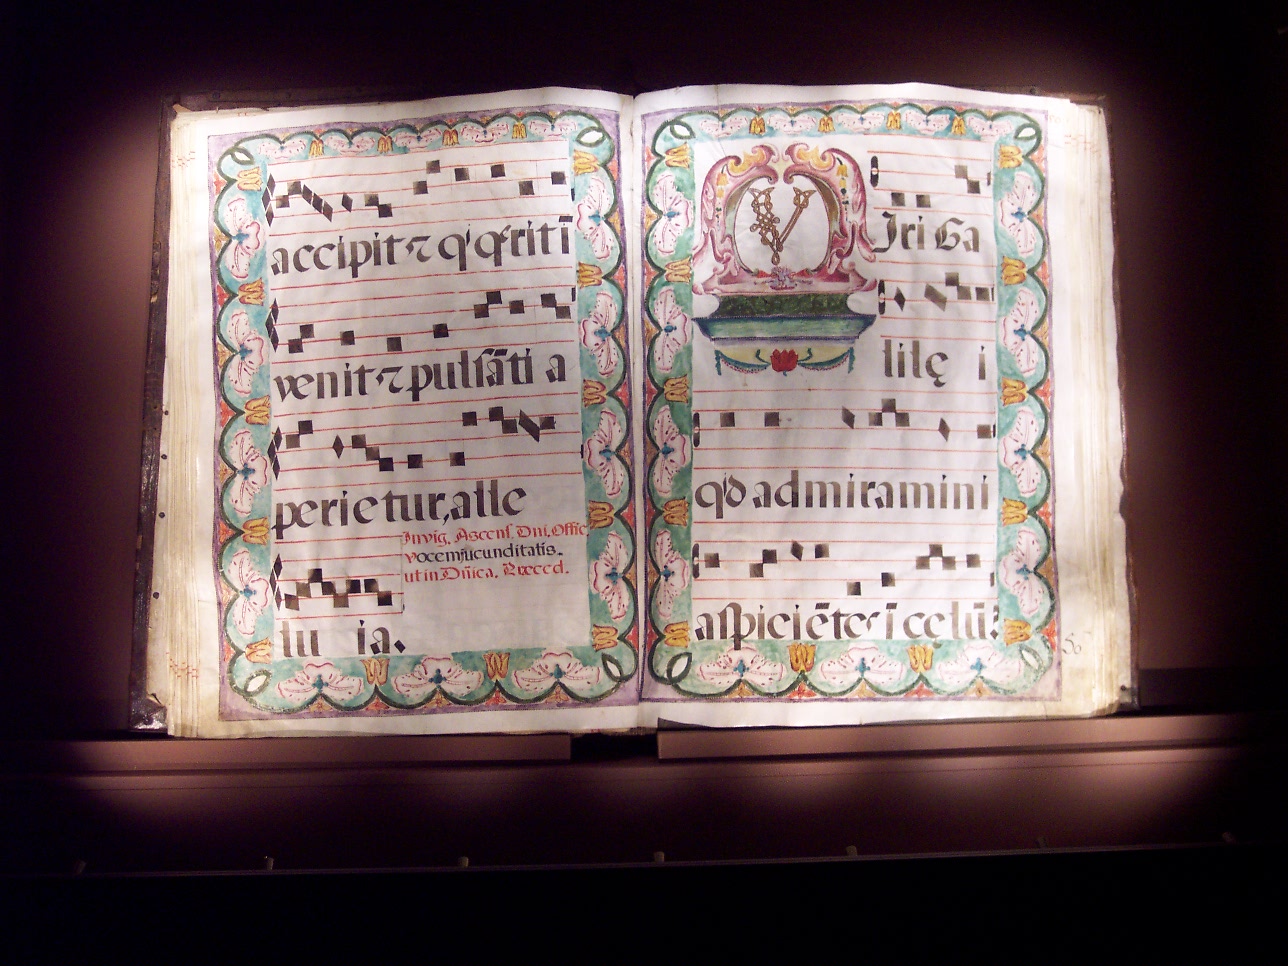 accipit⁊ q' q̄rit ī
venit ⁊ pulsāti a
perietur, alle
Invig. Ascens. Dni. Offic
vocem jucunditatis.
ut in Dn̄ica.
lu ia.
Viri Ga
lilę i
qd admiramini
aspiciētes ī cęlū?